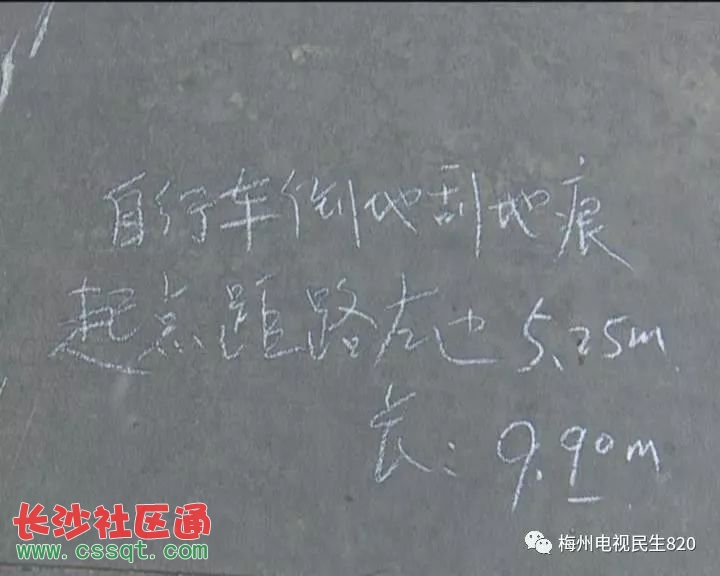 自行车倒地刮地痕
起点距路左边5.25m
长：9.90m
长沙社区通
www.cssqt.com
梅州电视民生820